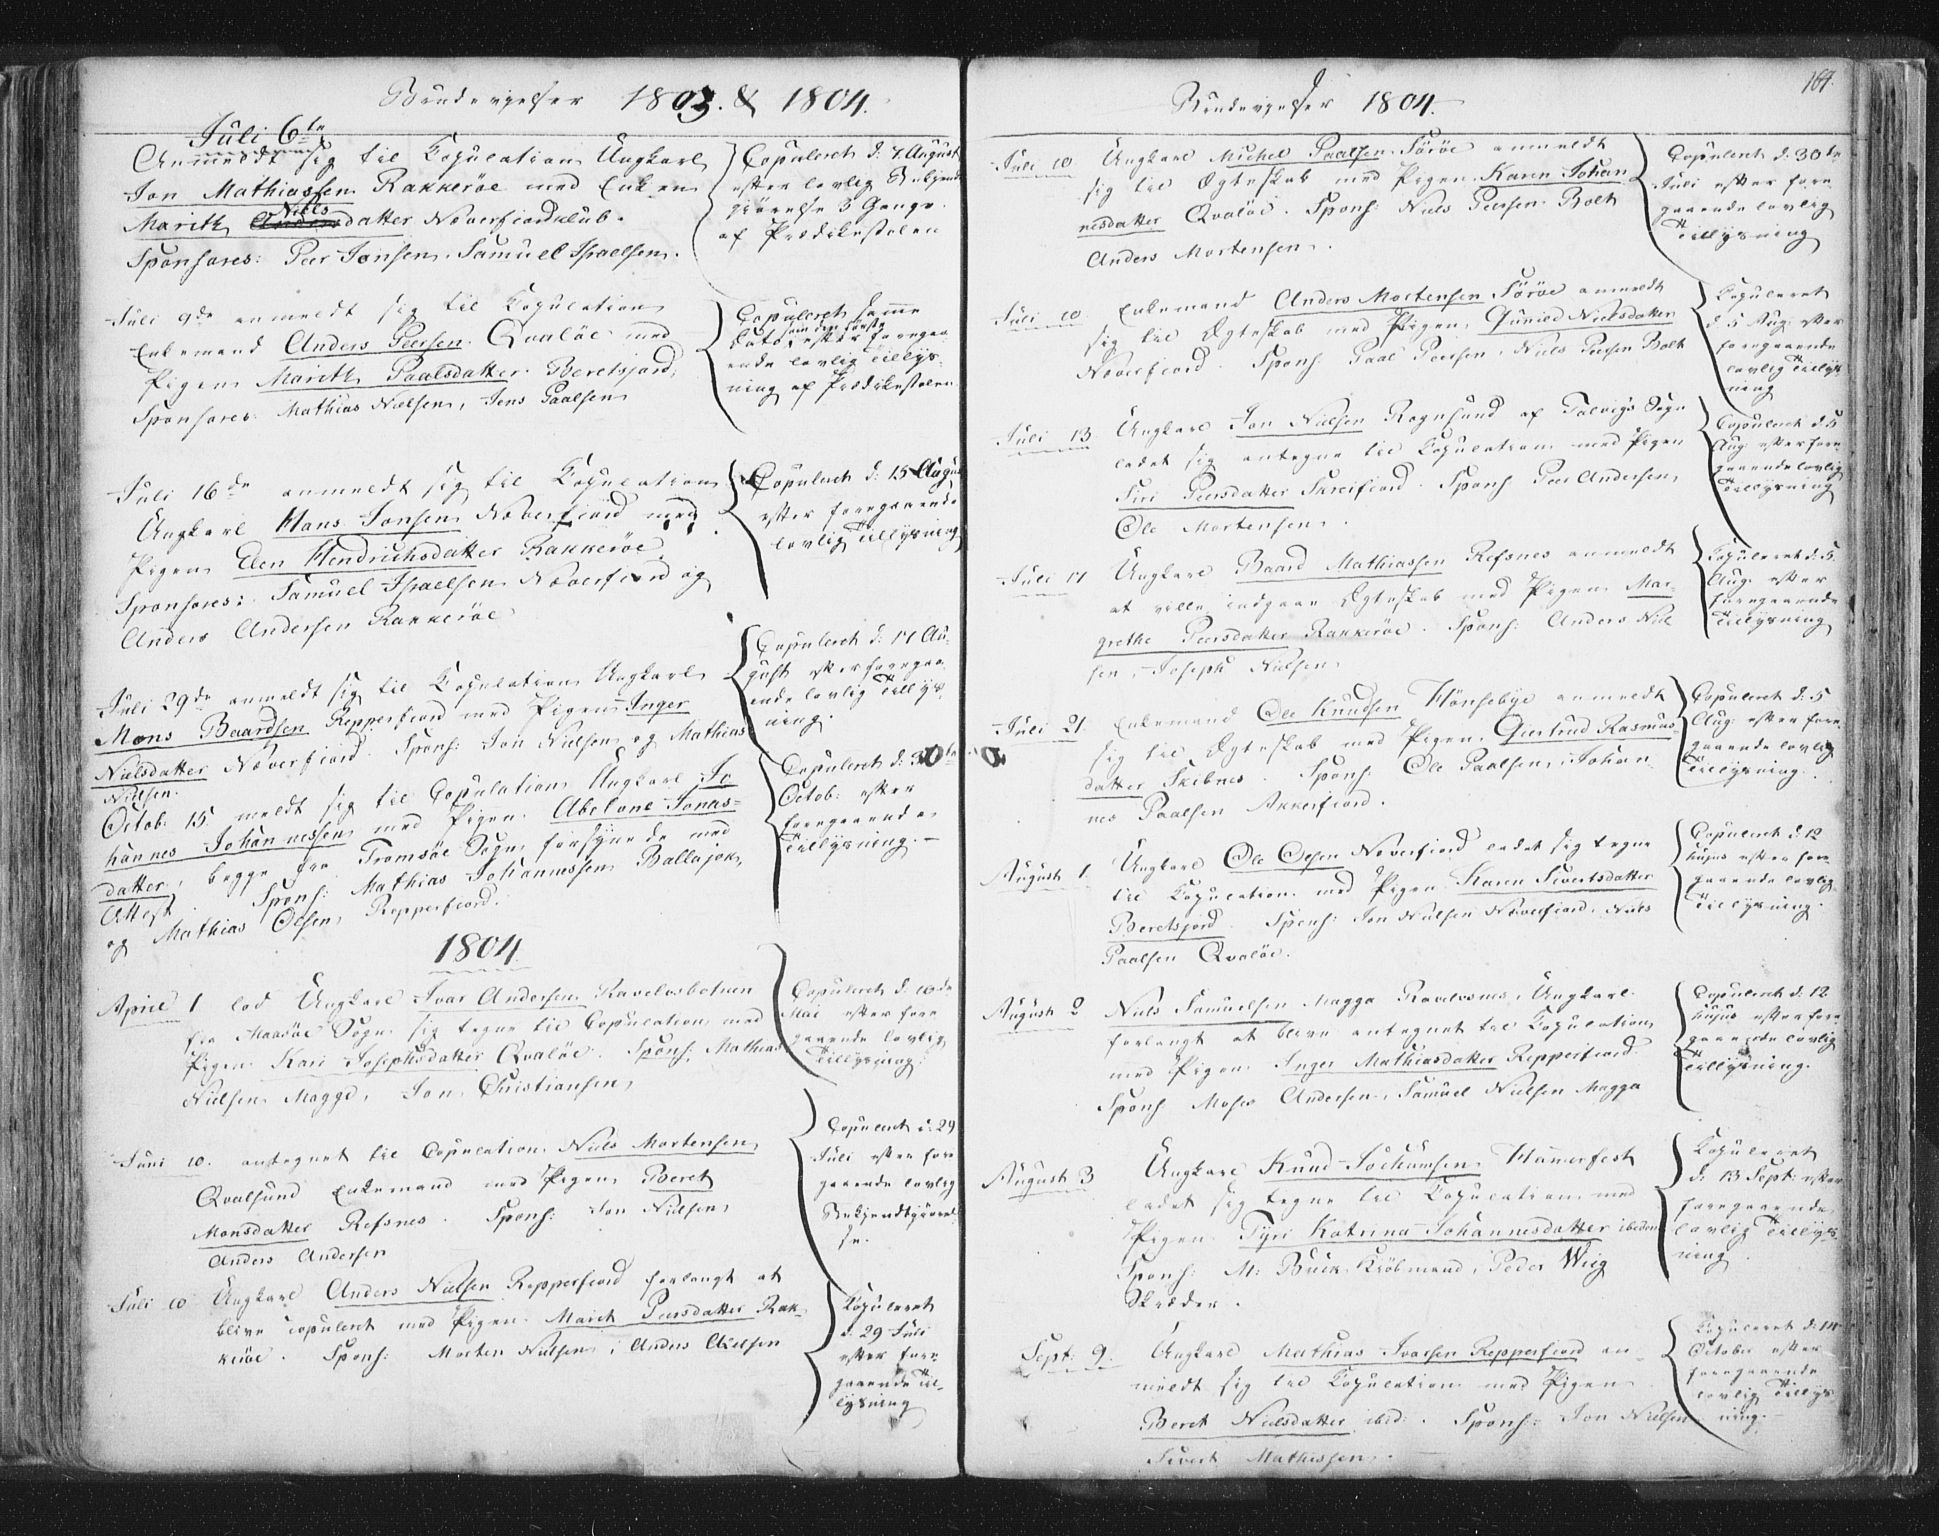 Brudevielser 1803. & 1804.
Juli 6te
Anmeldt sig til Kopulation Ungkarl
Jon Mathiassen Rakkeröe med Enken
Marith Niels datter Noverfiordklub.
Sponsores: Peer Jonsen. Samuel Isralsen.
Copuleret d: 7 August
efter lovlig Bekjendt
gjörelse 3 Gange
af Prædikestolen
Juli 9de anmeldt sig til Kopulation
Enkemand Anders Peersen Qvalöe med
Pigen Marith Paalsdatter Beretsjord,
Sponsores: Mathias Nielsen, Jens Paalsen
Copuleret samme
Dato som den förste efter foregaa
ende lovlig Tillys-
ning af Prædikestolen
Juli 16de anmeldt sig til Kopulation
Ungkarl Hans Jonsen Noverfiord med
Pigen Elen Hendrichsdatter Rakkeröe
Sponsores: Samuel Isralsen Noverfiord og
Anders Andersen Rakkeröe
Copuleret d: 15 August
efter foregaaende
lovlig Tillysning
Juli 29de anmeldt sig til Kopulation Ungkarl
Mons Baardsen Repperfiord med Pigen Inger
Nielsdatter Noverfiord Spons: Jon Nielsen og Mathias
Nielsen.
Copuleret d: 17 Au-
gust efter foregaa-
ende lovlig Tillys-
ning.
Octob: 15 meldt sig til Copulation Ungkarl Jo
hannes Johannessen med Pigen Abelone Jonas-
datter, begge fra Tromsöe Sogn forsynede med
Attest. Spons: Mathias Johannessen Ballajok,
og Mathias Olsen Repperfiord.
Copuleret d: 30te
Octob: efter
foregaaende
Tillysning.
1804
April 1 lod Ungkarl Ivar Andersen Ravelvsbotnen
fra Maasöe Sogn sig tegne til Copulation med
Pigen Kari Josephsdatter Qvalöe. Spons: Mathias
Nielsen Magge, Jon Christiansen
Copuleret d: 10de
Mai efter fore
gaaende lovlig
Tillysning.
Juni 10. antegnet til Copulation Niels Mortensen
Qvalsund Enkemand med Pigen Beret
Monsdatter Refsnes. Spons: Jon Nielsen
Anders Andersen
Copuleret d: 29
Juli efter fore
gaaende lovlig
Bekjendtgjörel-
se.
Juli 10 Ungkarl Anders Nielsen Repperfiord forlangt at
blive copuleret med Pigen Marit Peersdatter Rak-
keröe. Spons: Morten Nielsen, Anders Olsen
Kopuleret
d: 29 Juli
efter fore
gaaende Til-
lysning
Brudevielser 1804.
164.
Juli 10 Ungkarl Michel Paalsen Söröe anmeldt
sig til Ægteskab med Pigen Karen Johan
nesdatter Qvalöe. Spons: Niels Peersen Bolt
Anders Mortensen.
Copuleret d: 30te
Juli efter fore-
gaaende lovlig
Tillysning
Juli 10 Enkemand Anders Mortensen Söröe anmeldt
sig til Ægteskab med Pigen Guniod Nielsdatter
Noverfiord. Spons: Paal Peersen, Niels Peersen Bolt
Kopuleret
d 5 Aug: efter
foregaaende
lovlig Tillys
ning
Juli 13 Ungkarl Jon Nielsen Rognsund af Talvigs Sogn
ladet sig antegne til Kopulation med Pigen
Siri Peersdatter Skreifiord. Spons: Peer Andersen,
Ole Mortensen.
Copuleret d 5
Aug: efter fore-
gaaende lovlig
Tillysning
Juli 17 Ungkarl Baard Mathiassen Refsnes anmeldt
at ville indgaae Ægteskab med Pigen Mar-
grethe Peersdatter Rakkeröe. Spons: Anders Niel
sen, Joseph Nielsen
Kopuleret d: 5
Aug: efter
foregaaende
Tillysning
Juli 21. Enkemand Ole Knudsen Hönsebye anmeldt
sig til Ægteskab med Pigen Giertrud Rasmus-
datter Skibnes. Spons: Ole Paalsen, Johan-
nes Paalsen Akkerfiord.
Copuleret d: 5
Aug: efter fore-
gaaende lovlig
Tillysning.
August 1. Ungkarl Ole Olsen Noverfiord ladet sig tegne
til Kopulation med Pigen Karen Sivertsdatter
Beretsjord. Spons: Jon Nielsen Noverfiord, Niels
Paalsen Qvalöe.
Copuleret d: 12
hujus efter fore
gaaende lovlig
Tillysning.
August 2 Niels Samuelsen Magga Ravelvsnes, Ungkarl
forlangt at blive antegnet til Kopulation
med Pigen Inger Mathiasdatter Repperfiord.
Spons Moses Andersen, Samuel Nielsen Magga
Copuleret d: 12
hujus efter fore-
gaaende lovlig
Tillysning.
August 3 Ungkarl Knud Jochumsen Hammerfest
ladet sig tegne til Kopulation med
Pigen Tyri Katrina Johannesdatter ibidem
Spons: M: Buck Kiöbmand, Peder Wiig
Skræder.
Kopuleret
d: 13 Sept: efter
foregaaende
lovlig Tillys-
ning
Sept: 9. Ungkarl Mathias Ivarsen Repperfiord an-
meldt sig til Kopulation med Pigen
Beret Nielsdatter ibid:. Spons: Jon Nielsen
Sivert Mathisen.
Kopuleret d: 14
October efter
foregaaende
lovlig Tillys
ning.